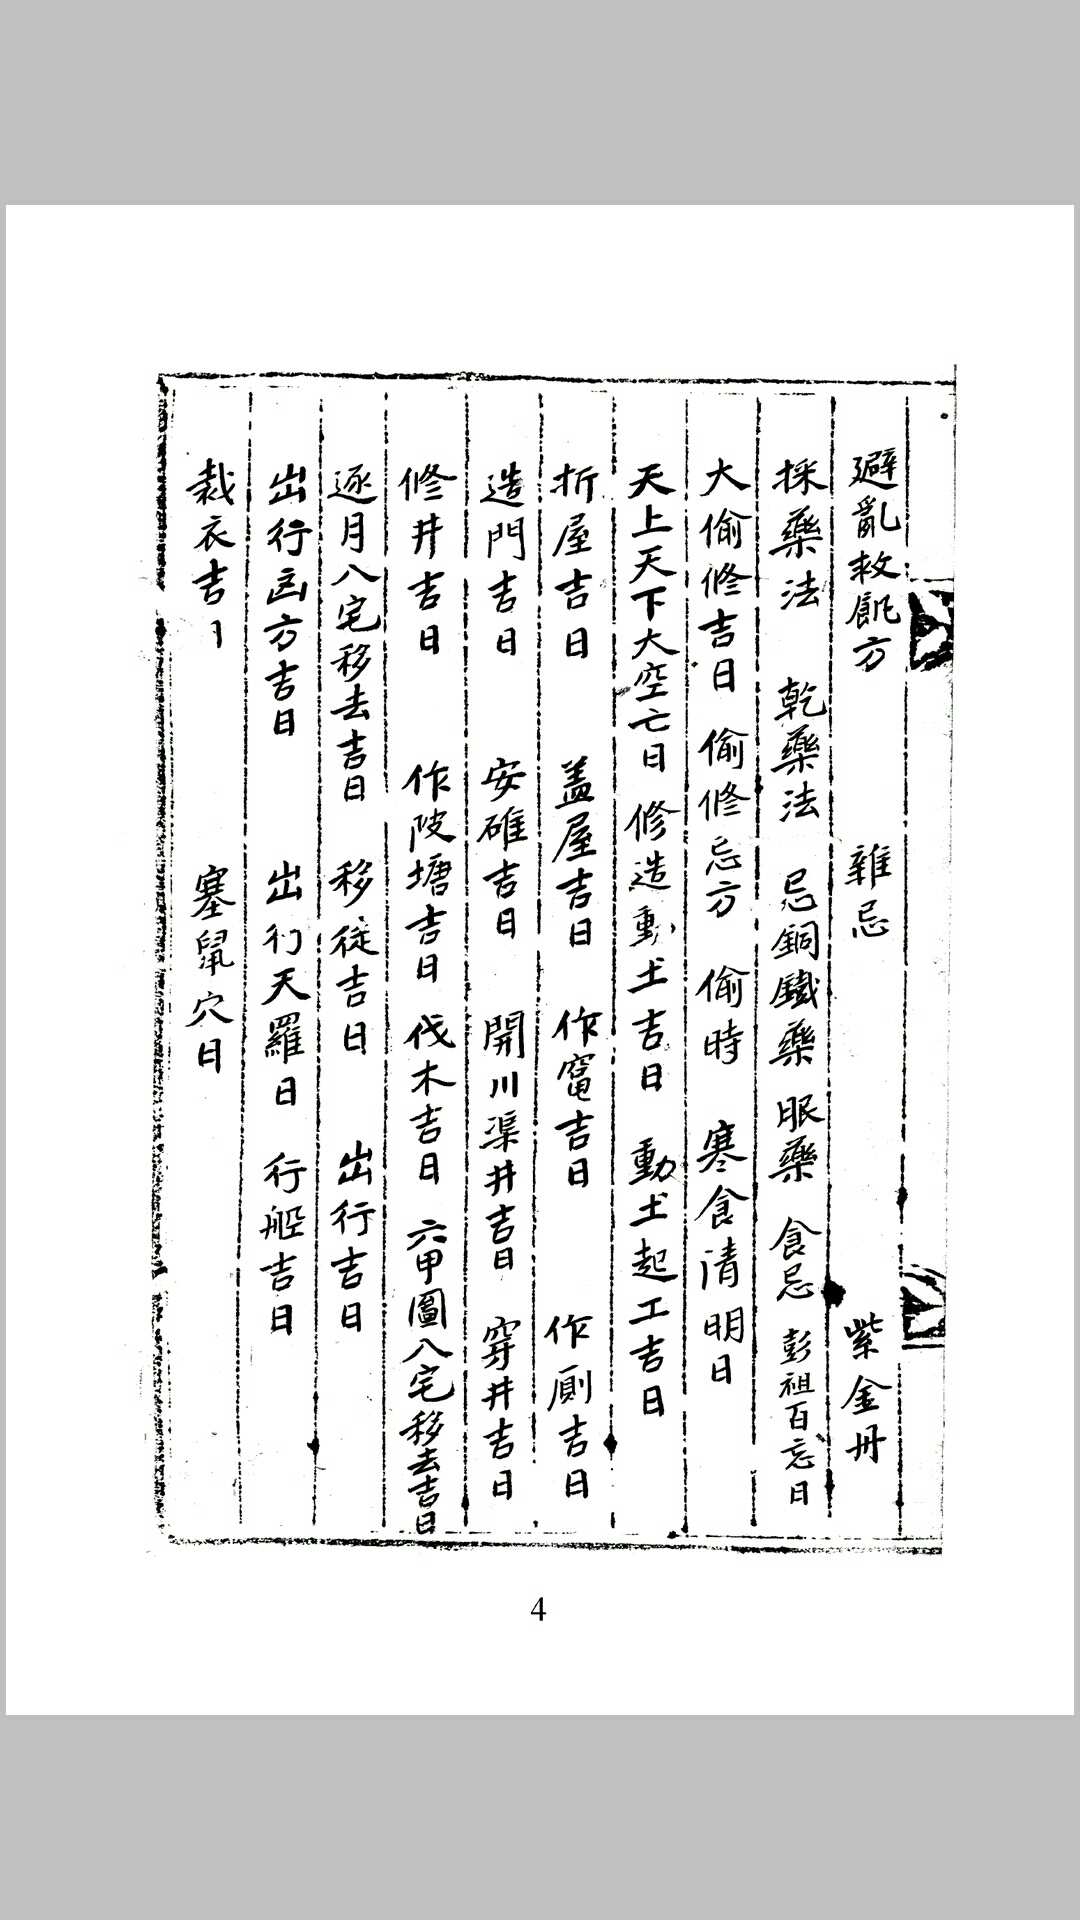 避亂救飢方 雜忌 紫金丹
採藥法 乾藥法 忌銅鐵藥 服藥 食忌 彭祖百忌日
大偷修吉日 偷修忌方 偷時 寒食清明日
天上天下大空亡日 修造動土吉日 動土起工吉日
折屋吉日 盖屋吉日 作竈吉日 作厠吉日
造門吉日 安碓吉日 開川渠井吉日 穿井吉日
修井吉日 作陂塘吉日 伐木吉日 六甲圖八宅移去吉日
逐月八宅移去吉日 移徙吉日 出行吉日
出行凶方吉日 出行天羅日 行船吉日
裁衣吉日 塞鼠穴日
4